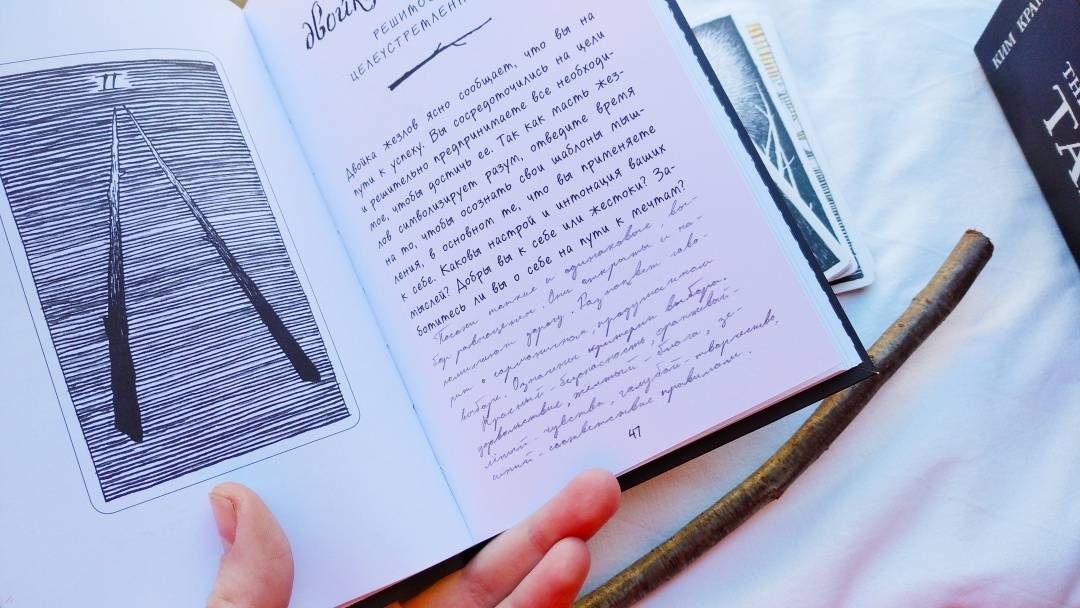 II
двойка
РЕШИТЕ
ЦЕЛЕУСТРЕМЛЕН
Двойка жезлов ясно сообщает, что вы на
пути к успеху. Вы сосредоточились на цели
и решительно предпринимаете все необходи-
мое, чтобы достичь ее. Так как масть жез-
лов символизирует разум, отведите время
на то, чтобы осознать свои шаблоны мыш-
ления, в основном те, что вы применяете
к себе. Каковы настрой и интонация ваших
мыслей? Добры вы к себе или жестоки? За-
ботитесь ли вы о себе на пути к мечтам?
Посохи тонкие и одинаковые, вы-
бор равноценен. Они открыты и на-
поминают дорогу. Разноцвет гово-
рит о гармоничном, продуманном
выборе. Означены критерии выбора.
Красный - безопасность, оранжевый -
удовольствие, желтый - блага, зе-
лёный - чувства, голубой - творчество,
синий - соответствие правилам.
47
КИМ КРАН
TH
ТА